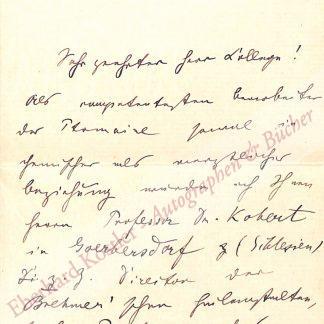 Sehr geehrter Herr College!
Als competentesten bearbeiter
der Ptomaine sowol in
chemischer als
beziehung Ihnen
Herrn Professor Dr. Kobert
in Goerbersdorf (Schlesien)
d. z. Director der
Brehmer'schen Heilanstalten,
Eberhard Köstler Autographen & Bücher